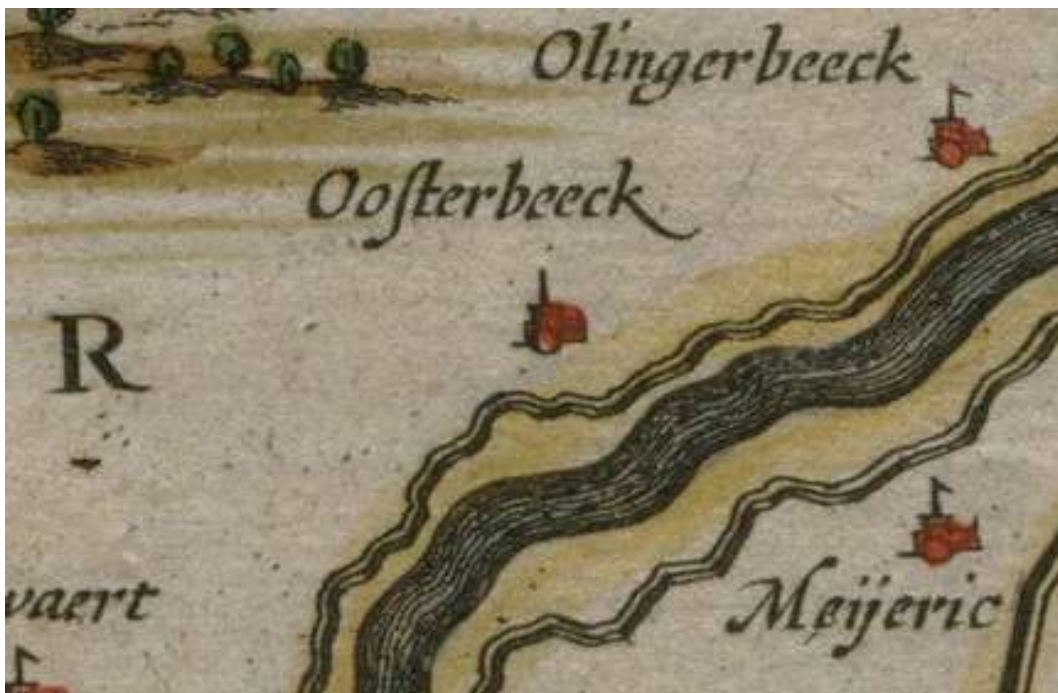 Olingerbeeck
Ooſterbeeck
R
vaert
Meijeric